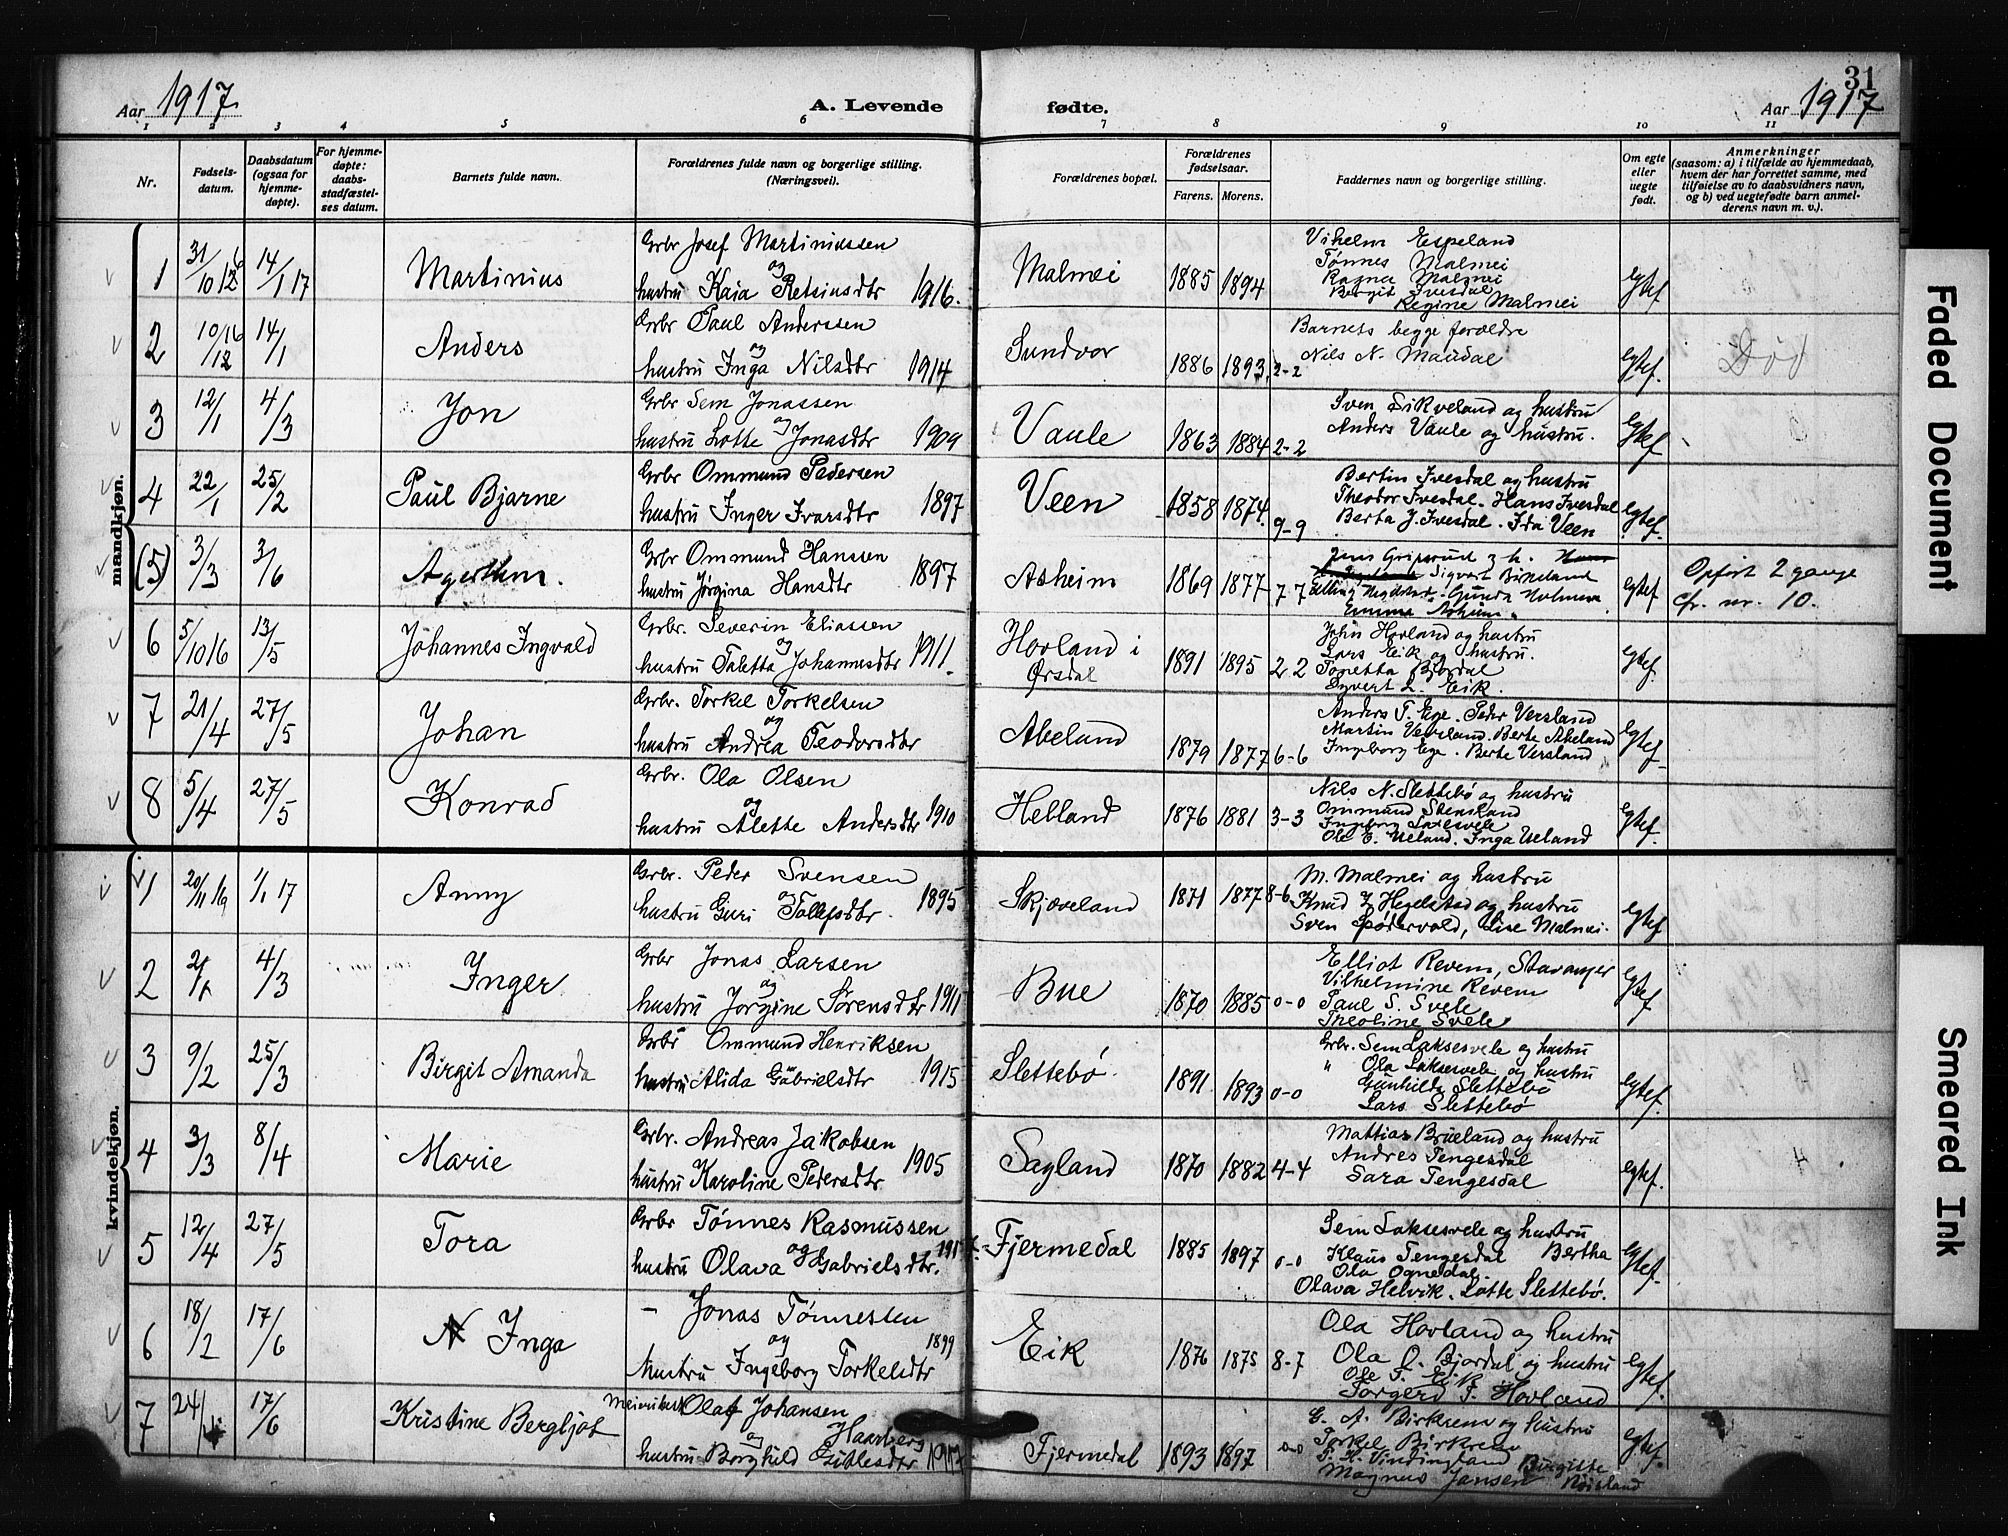 Aar 1917
A. Levende fødte.
Aar 1917
31
1 2 3 4 5 6 7 8 9 10 11
Nr.
Fødsels-datum.
Daabsdatum (ogsaa for hjemme-døpte).
For hjemme-døpte: daabs-stadfæstel-ses datum.
Barnets fulde navn.
Forældrenes fulde navn og borgerlige stilling. (Næringsvei).
Forældrenes bopæl.
Forældrenes fødselsaar. Farens. Morens.
Faddernes navn og borgerlige stilling.
Om egte eller uegte født.
Anmerkninger (saasom: a) i tilfælde av hjemmedaab, hvem der har forrettet samme, med tilføielse av to daabsvidners navn, og b) ved uegtefødte barn anmel-derens navn m. v.).
mandkjøn.
1 31/10 14/1 17 Martinius
Grbr Josef Martiniussen
og
hustru Kaia Retsiusdtr 1916.
Malmei 1885 1894
Vihelm Espeland
Tønnes Malmei
Ragna Malmei
Bergit Ivesdal
Regine Malmei
Egtef
2 10/12 16 14/1 Anders
Grbr Paul Anderssen
og
hustru Inga Nilsdtr 1914
Sundvor 1886 1893. 2-2
Barnets begge forældre
Nils N. Maudal
Egtef.
Død
3 12/1 4/3 Jon
Grbr Sem Jonassen
og
hustru Lotte Jonasdtr 1909
Vaule 1863 1884 2-2
Sven Sikveland og hustru
Anders Vaule og hustru.
Egtef
4 22/1 25/2 Paul Bjarne
Grbr Ommund Pedersen
hustru Inger Ivarsdtr 1897
Veen 1858 1874. 9-9
Bertin Ivesdal og hustru
Theodor Ivesdal. Hans Ivesdal
Berta J. Ivesdal. Ida Veen
Egtef.
(5) 3/3 3/6
Grbr Ommund Hanssen
hustru Jørgina Hansdtr 1897
Asheim 1869 1877 7-7
Sigvart Birkeland
Emma Asheim
Egtef
Opført 2 gange
cfr. nr. 10.
6 5/10 16 13/5 Johannes Ingvald
Grbr. Severin Eliassen
og
hustru Taletta Johannesdtr 1911.
Hovland i
Ørsdal 1891 1895 2 2
John Hovland og hustru
Lars Eik og hustru.
Tonetta Bjordal
Syvert L. Eik.
Egtef.
7 21/4 27/5 Johan
Grbr. Torkel Torkelsen
og
hustru Andrea Teodorsdtr
Abeland 1879 1877 6-6
Anders T. Ege. Peder Versland
Martin Versland. Berte Abeland
Ingeborg Ege. Berte Versland
Egtef
8 5/4 27/5 Konrad
Grbr. Ola Olsen
og
hustru Alette Andersdtr 1910
Helland 1876 1881 3-3
Nils N. Slettebø og hustru
Ommund Stensland
Ingeborg Laksesvele
Ole E. Ueland. Inga Ueland
Egtef.
kvindekjøn.
1 20/11 16 1/1 17 Anny
Grbr. Peder Svensen
og
hustru Guri Tollefsdtr. 1895
Skjæveland 1871 1877 8-6
M. Malmei og hustru
Knud J Hegelstad og hustru
Sven Spødervold, Lise Malmei.
Egtef
2 2/1 4/3 Inger
Grbr Jonas Larsen
og
hustru Jorgine Sørensdtr 1911
Bue 1870 1885 0-0
Elliot Revem, Stavanger
Vilhelmine Revem
Paul S. Svele
Theoline Svele
Egtef
3 9/2 25/3 Birgit Amanda
Grbr Ommund Henriksen
hustru Alida Gabrielsdtr 1915
Slettebø 1891 1893 0-0
Grbr. Sem Laksesvele og hustru
" Ola Laksesvele og hustru
Gunhilda Slettebø
Lars Slettebø
Egtef.
4 3/3 8/4 Marie
Grbr. Andreas Jakobsen
hustru Karoline Pedersdtr 1905
Sagland 1870 1882 4-4
Mattias Brueland og hustru
Andres Tengesdal
Sara Tengesdal
Egtef.
5 12/4 27/5 Tora
Grbr Tønnes Rasmussen
og
hustru Olava Gabrielsdtr.
Fjermedal 1885 1897 0-0
Sem Laksesvele og hustru
Klaus Tengesdal Bertha
Ola Ognedal.
Olava Helvik. Lotte Slettebø.
Egtef.
6 18/2 17/6 Inga
– Jonas Tønnessen
og 1899
hustru Ingeborg Torkelsdtr
Eik 1876 1875 8-7
Ola Hovland og hustru
Ola O. Bjordal og hustru
Ole T. Eik
Torgerd T. Hovland
Egtef.
7 24/ 17/6 Kristine Bergljot
Olaf Johansen
og Haarberg
hustru Borghild Gitlesdtr
Fjermedal 1893 1897 0-0
G. A. Birkrem og hustru
Torkel Birkrem
T. H. Vindingland Birgitte
Magnus Jansen Røisland
Egtef.
Faded Document
Smeared Ink